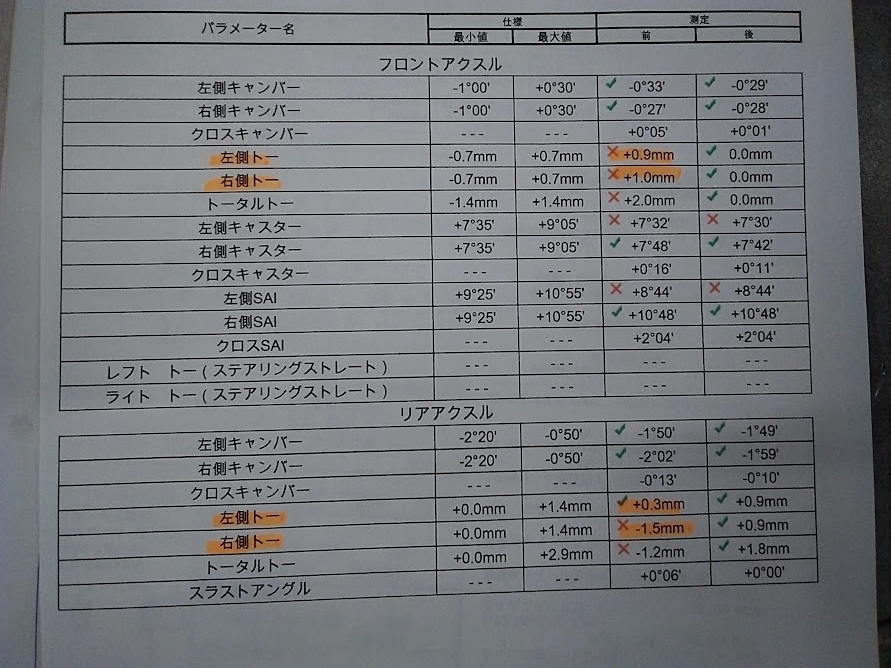 パラメーター名 仕様 測定
最小値 最大値 前 後
フロントアクスル
左側キャンバー -1°00' +0°30' ✓ -0°33' ✓ -0°29'
右側キャンバー -1°00' +0°30' ✓ -0°27' ✓ -0°28'
クロスキャンバー --- --- +0°05' +0°01'
左側トー -0.7mm +0.7mm ✕ +0.9mm ✓ 0.0mm
右側トー -0.7mm +0.7mm ✕ +1.0mm ✓ 0.0mm
トータルトー -1.4mm +1.4mm ✕ +2.0mm ✓ 0.0mm
左側キャスター +7°35' +9°05' ✕ +7°32' ✕ +7°30'
右側キャスター +7°35' +9°05' ✓ +7°48' ✓ +7°42'
クロスキャスター --- --- +0°16' +0°11'
左側SAI +9°25' +10°55' ✕ +8°44' ✕ +8°44'
右側SAI +9°25' +10°55' ✓ +10°48' ✓ +10°48'
クロスSAI --- --- +2°04' +2°04'
レフト トー(ステアリングストレート) --- --- --- ---
ライト トー(ステアリングストレート) --- --- --- ---
リアアクスル
左側キャンバー -2°20' -0°50' ✓ -1°50' ✓ -1°49'
右側キャンバー -2°20' -0°50' ✓ -2°02' ✓ -1°59'
クロスキャンバー --- --- -0°13' -0°10'
左側トー +0.0mm +1.4mm ✓ +0.3mm ✓ +0.9mm
右側トー +0.0mm +1.4mm ✕ -1.5mm ✓ +0.9mm
トータルトー +0.0mm +2.9mm ✕ -1.2mm ✓ +1.8mm
スラストアングル --- --- +0°06' +0°00'